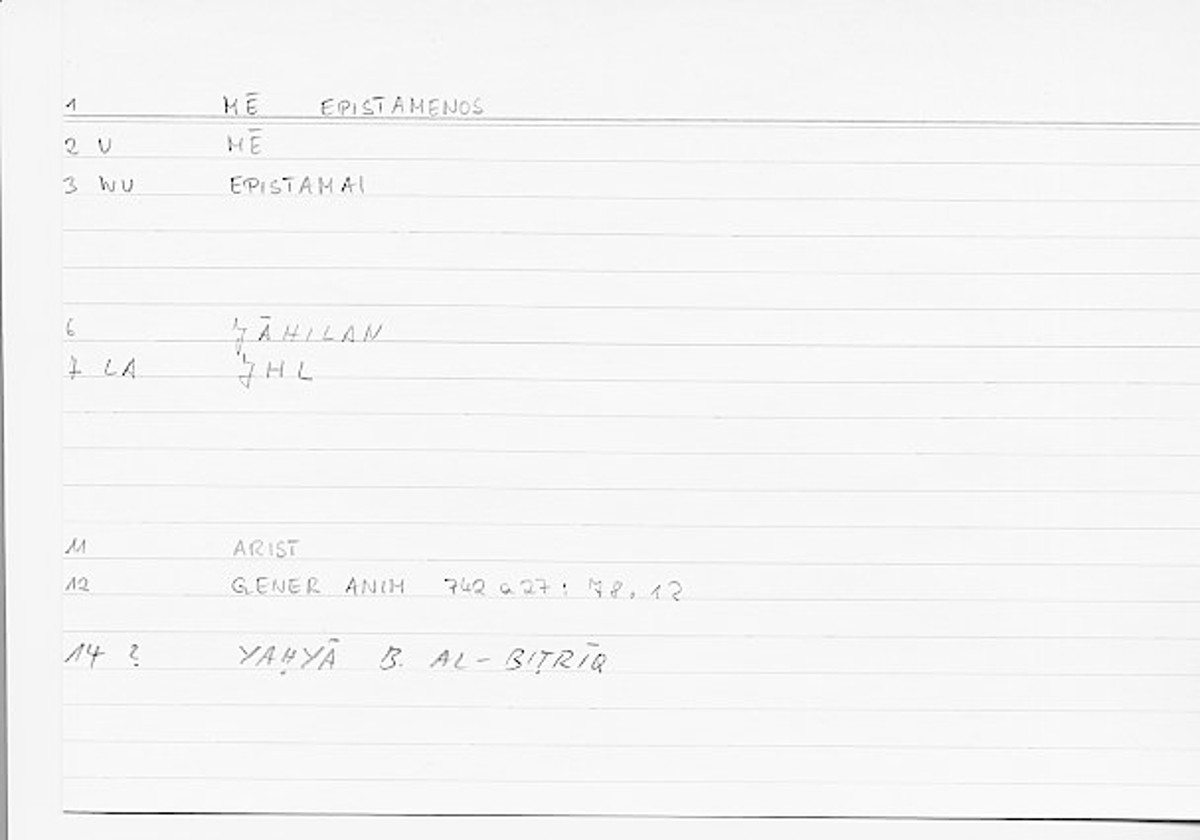 1 MĒ EPISTAMENOS
2 V MĒ
3 WU EPISTAMAI
6 ǦĀHILAN
7 LA ǦHL
11 ARIST
12 GENER ANIM 742 a 27 : 78.12
14 ? YAḤYĀ B. AL-BIṬRĪQ